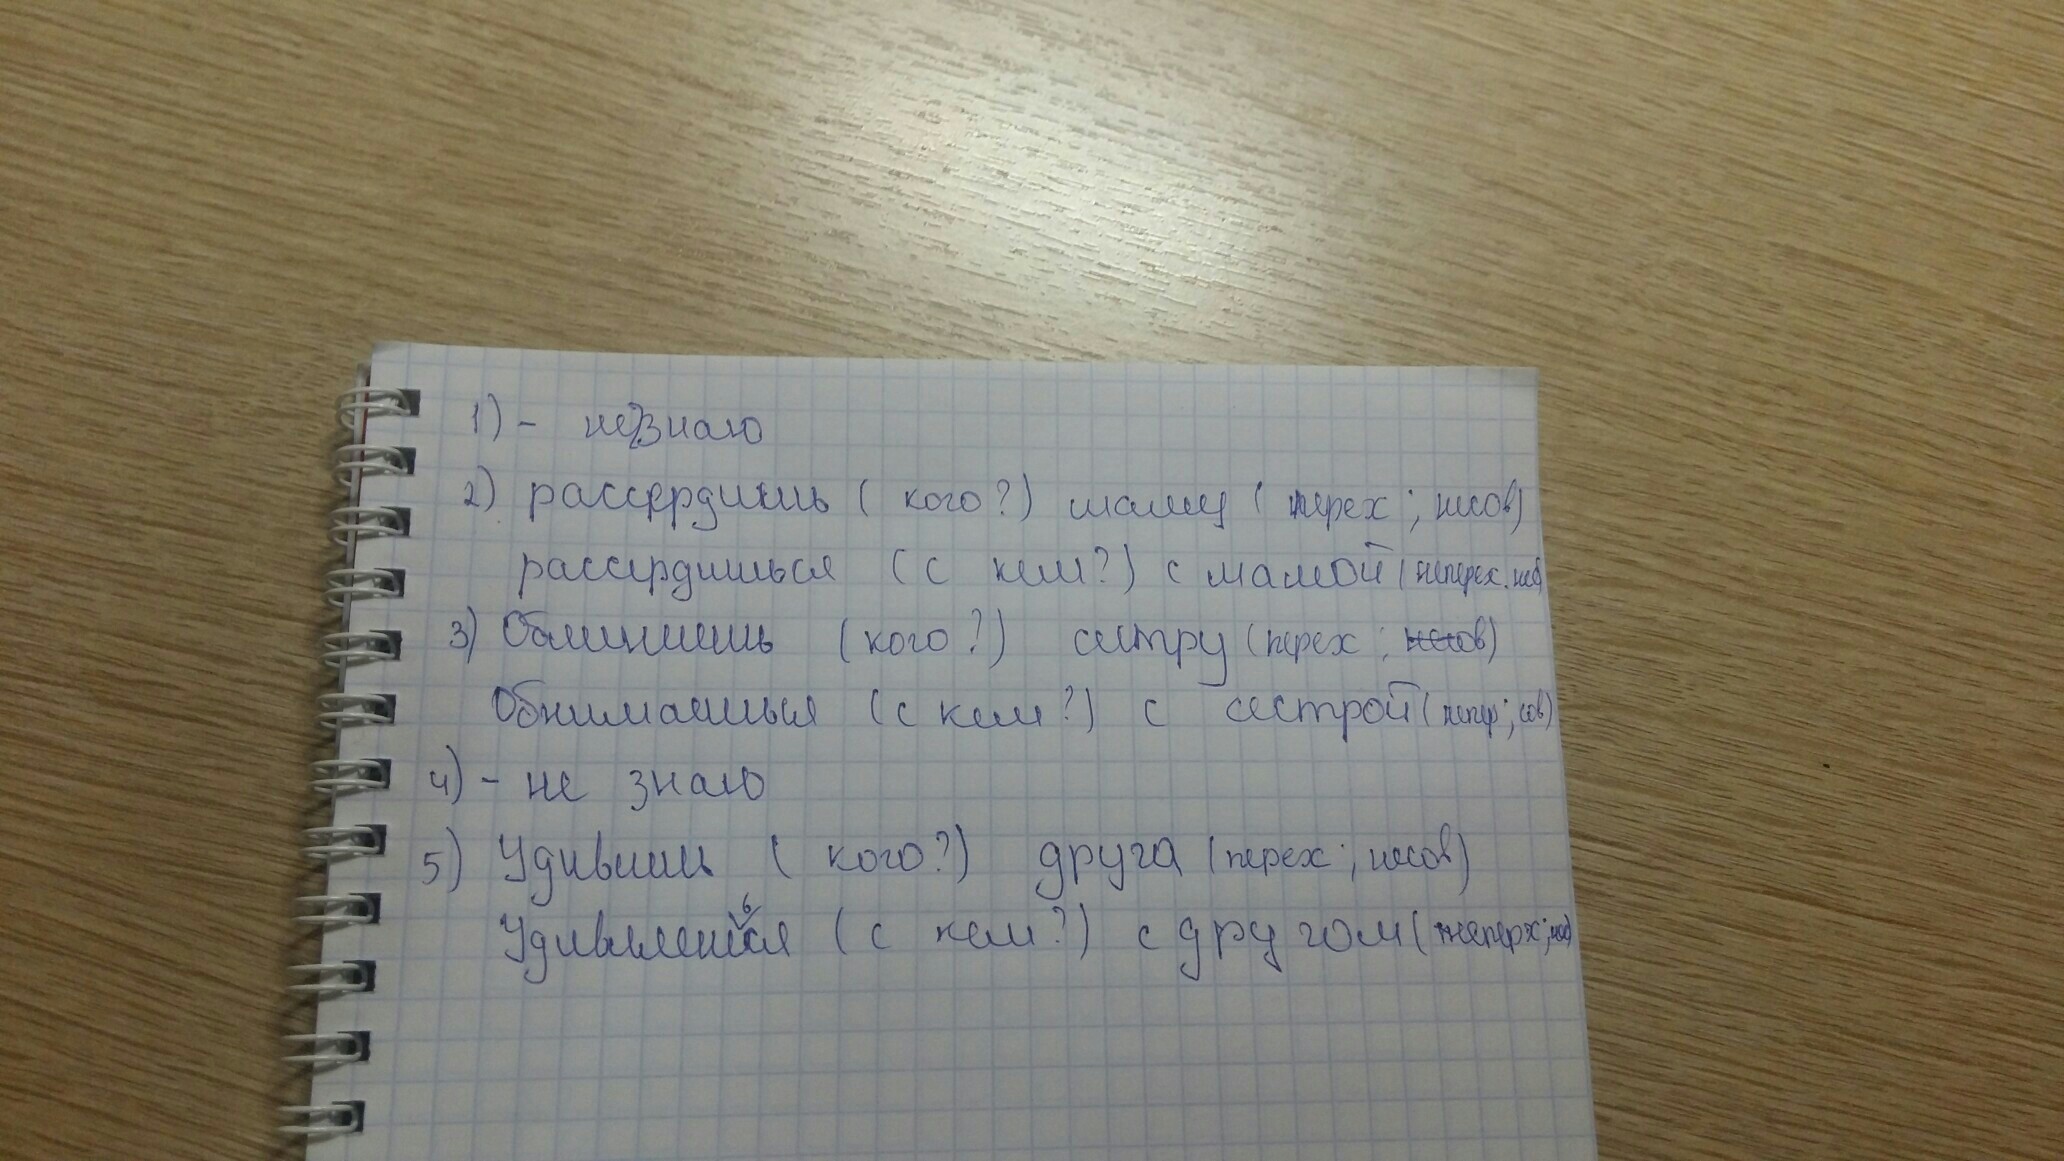 1) - не знаю
2) рассердишь ( кого?) маму ( перех ; несов)
рассердишься ( с кем?) с мамой (неперех. нес)
3) Обнимешь ( кого?) сестру (перех ; несов)
Обнимаешься (с кем?) с сестрой (непер; сов)
4) - не знаю
5) Удивишь ( кого?) друга (перех ; несов)
Удивляешься ( с кем?) с другом (неперх;